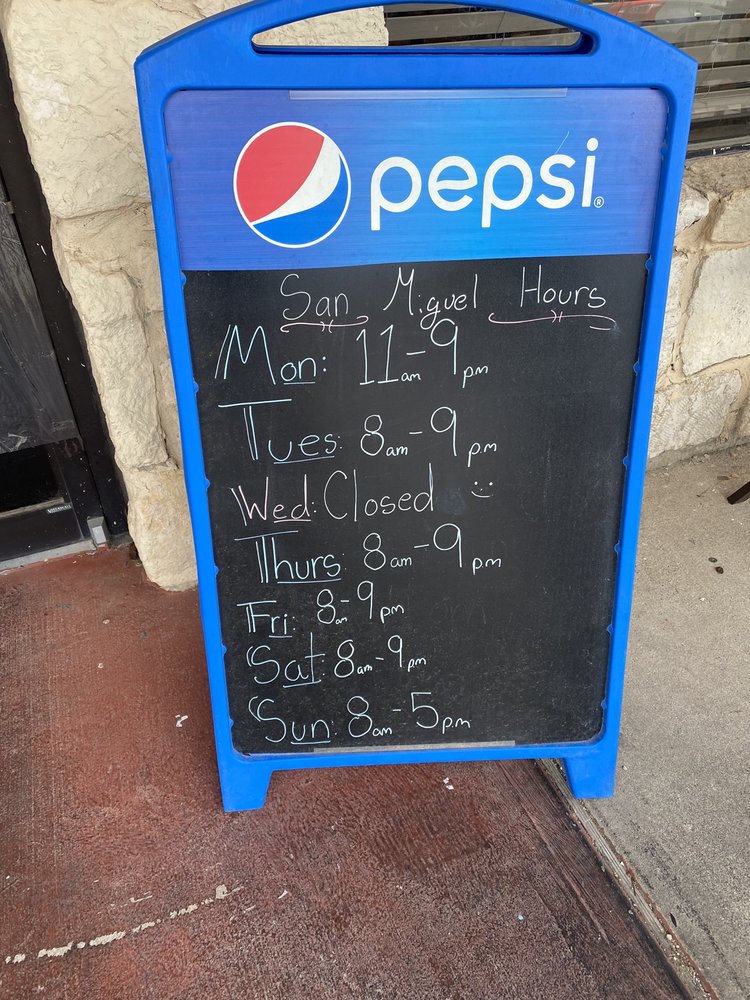 pepsi®
San Miguel Hours
Mon: 11am-9pm
Tues: 8am-9pm
Wed: Closed
Thurs 8am-9pm
Fri: 8am-9pm
Sat: 8am-9pm
Sun: 8am-5pm